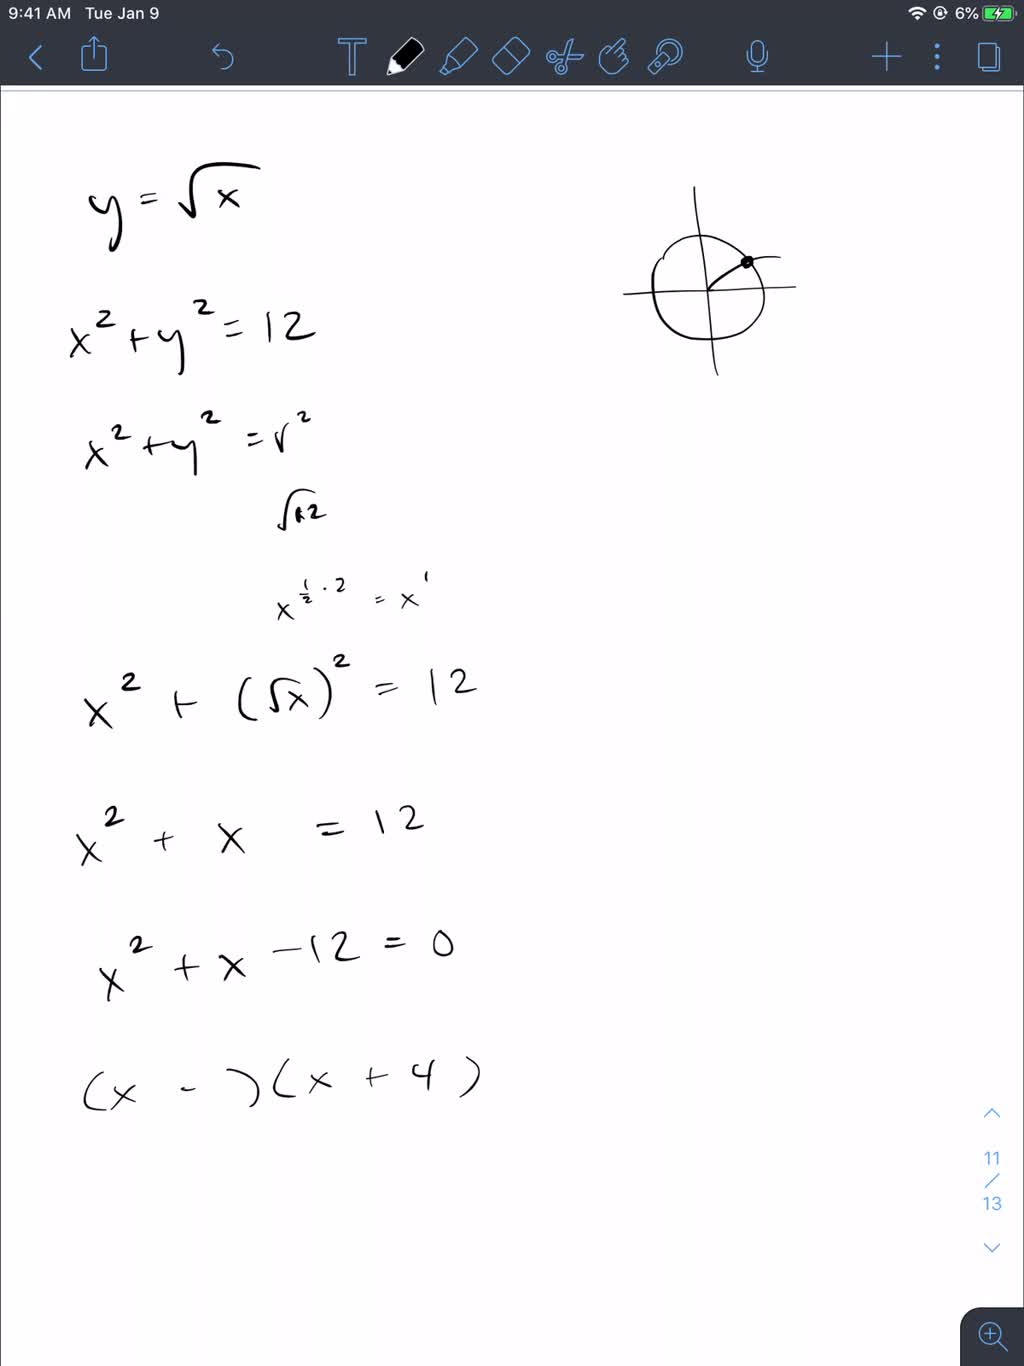 9:41 AM Tue Jan 9 6%
T
y = √x
x² + y² = 12
x² + y² = r²
√12
x^(1/2 · 2) = x¹
x² + (√x)² = 12
x² + x = 12
x² + x - 12 = 0
(x - )(x + 4)
11
/
13